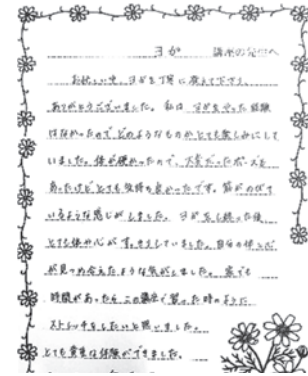 ヨガ 講座の先生へ
お忙しい中、ヨガを丁寧に教えて下さり、
ありがとうございました。私は、ヨガをやった経験
はなかったので、どのようなものかとても楽しみにして
いました。体が硬かったので、大変だったポーズも
あったけどとても気持ち良かったです。筋がのびて
いるような感じがしました。ヨガをし終った後、
とても体や心がすっきりしていました。自分の体と心
が見つめ合えたような気がしました。家でも
時間があったらこの講座で習った時のように
ストレッチをしたいと思いました。
とても貴重な体験ができました。